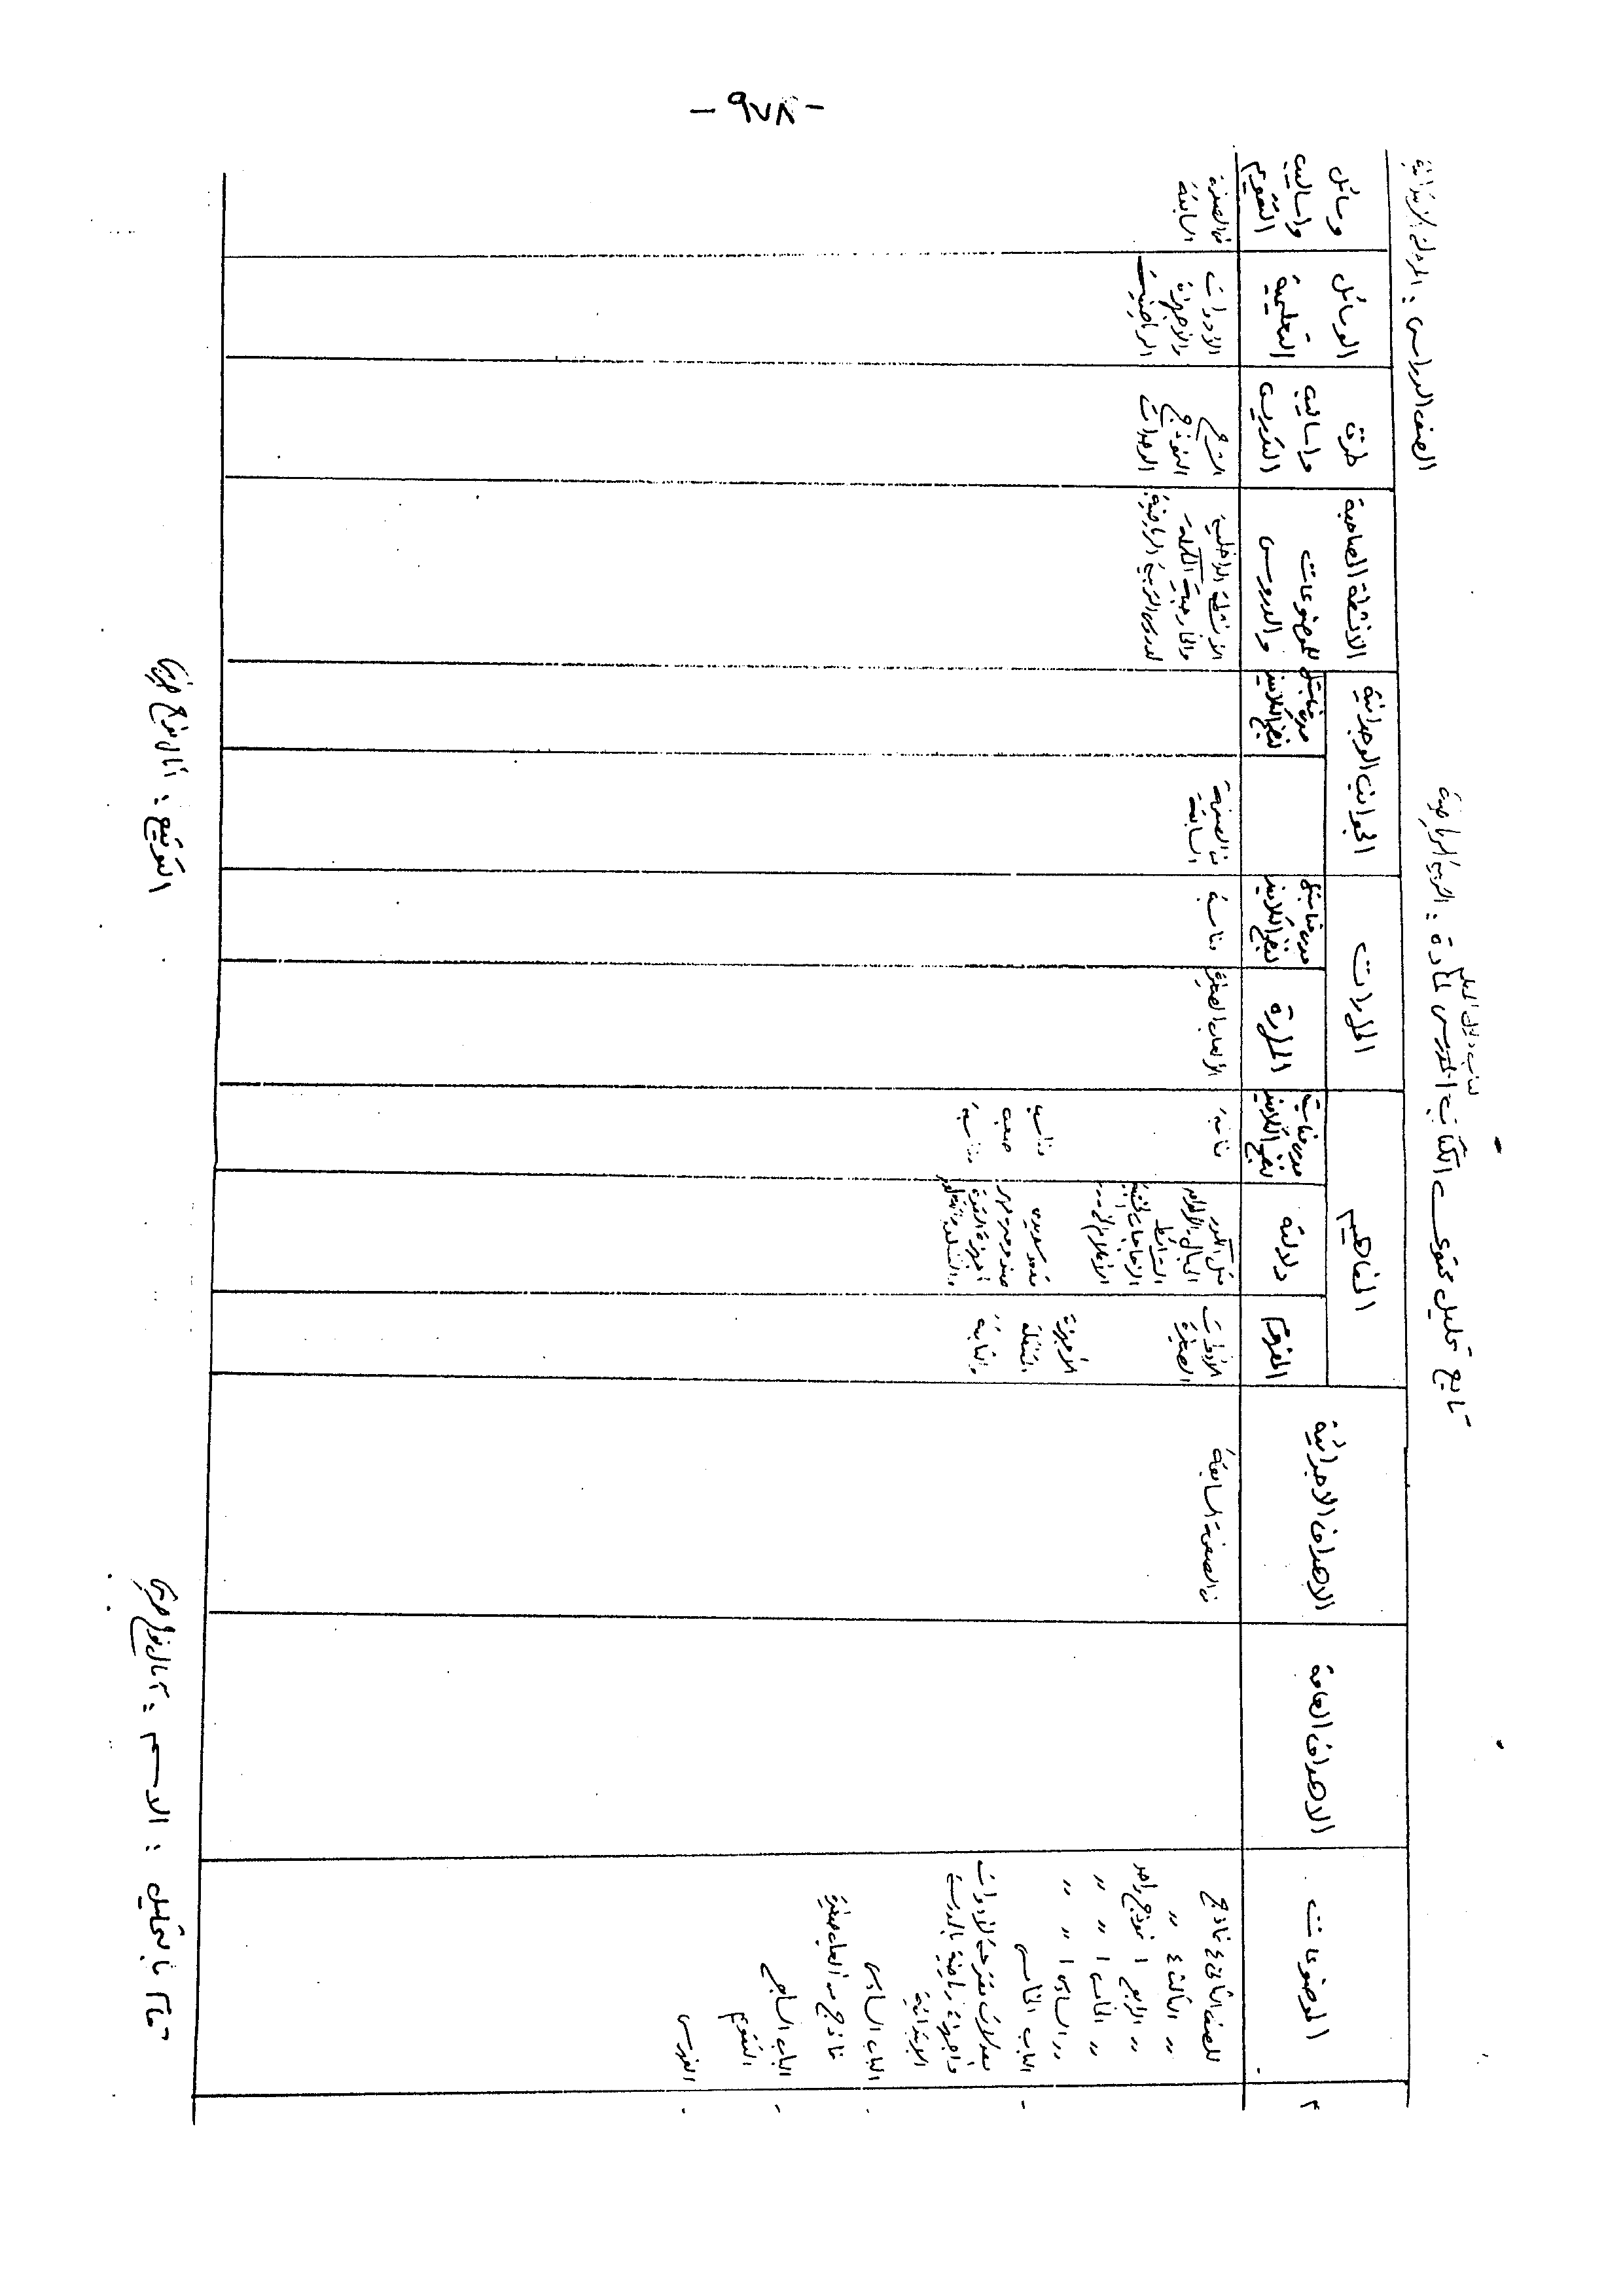 - ٩٧٨ -
تابع تحليل محتوى الكتاب المدرسي لمادة : التربية الرياضية
كتاب دليل المعلم
الصف الدراسي : المرحلة الابتدائية
م
الموضوعات
الاهداف العامة
الاهداف الاجرائية
المفاهيم
المفهوم
دلالته
مدى مناسبته لنضج التلاميذ
المهارات
المهارة
مدى مناسبتها لنضج التلاميذ
الجوانب الوجدانية
مدى مناسبتها لنضج التلاميذ
الانشطة المصاحبة
للموضوعات
والدروس
طرق
واساليب
التدريس
الوسائل
التعليمية
وسائل
واساليب
التقويم
للصف الثاني ٤ نماذج
〃 الثالث ٤ 〃
〃 الرابع ١ نموذج واحد
〃 الخامس ١ 〃 〃
〃 السادس ١ 〃 〃
الباب الخامس
معدلات مقترحة للأدوات
وأجهزة رياضية بالمدرسة
الابتدائية
الباب السادس
نماذج من ألعاب صغيرة
الباب السابع
التقويم
الفهرس
من الصفحة السابقة
الأدوات
الصغيرة
الأجهزة
المتنقلة
والثابتة
مثل الكور
الحبال والأطواق
الشرائط
مقعد سويدي
مناسبة
مناسبة
صعبة
مناسبة
الألعاب الصغيرة
مناسبة
من الصفحة
السابقة
الأنشطة الداخلية
والخارجية المكملة
لدروس التربية الرياضية
الشرح
النموذج
الوحدات
الأدوات
والأجهزة
الرياضية
من الصفحة
السابقة
قام بالتحليل : الاسم :
التوقيع :